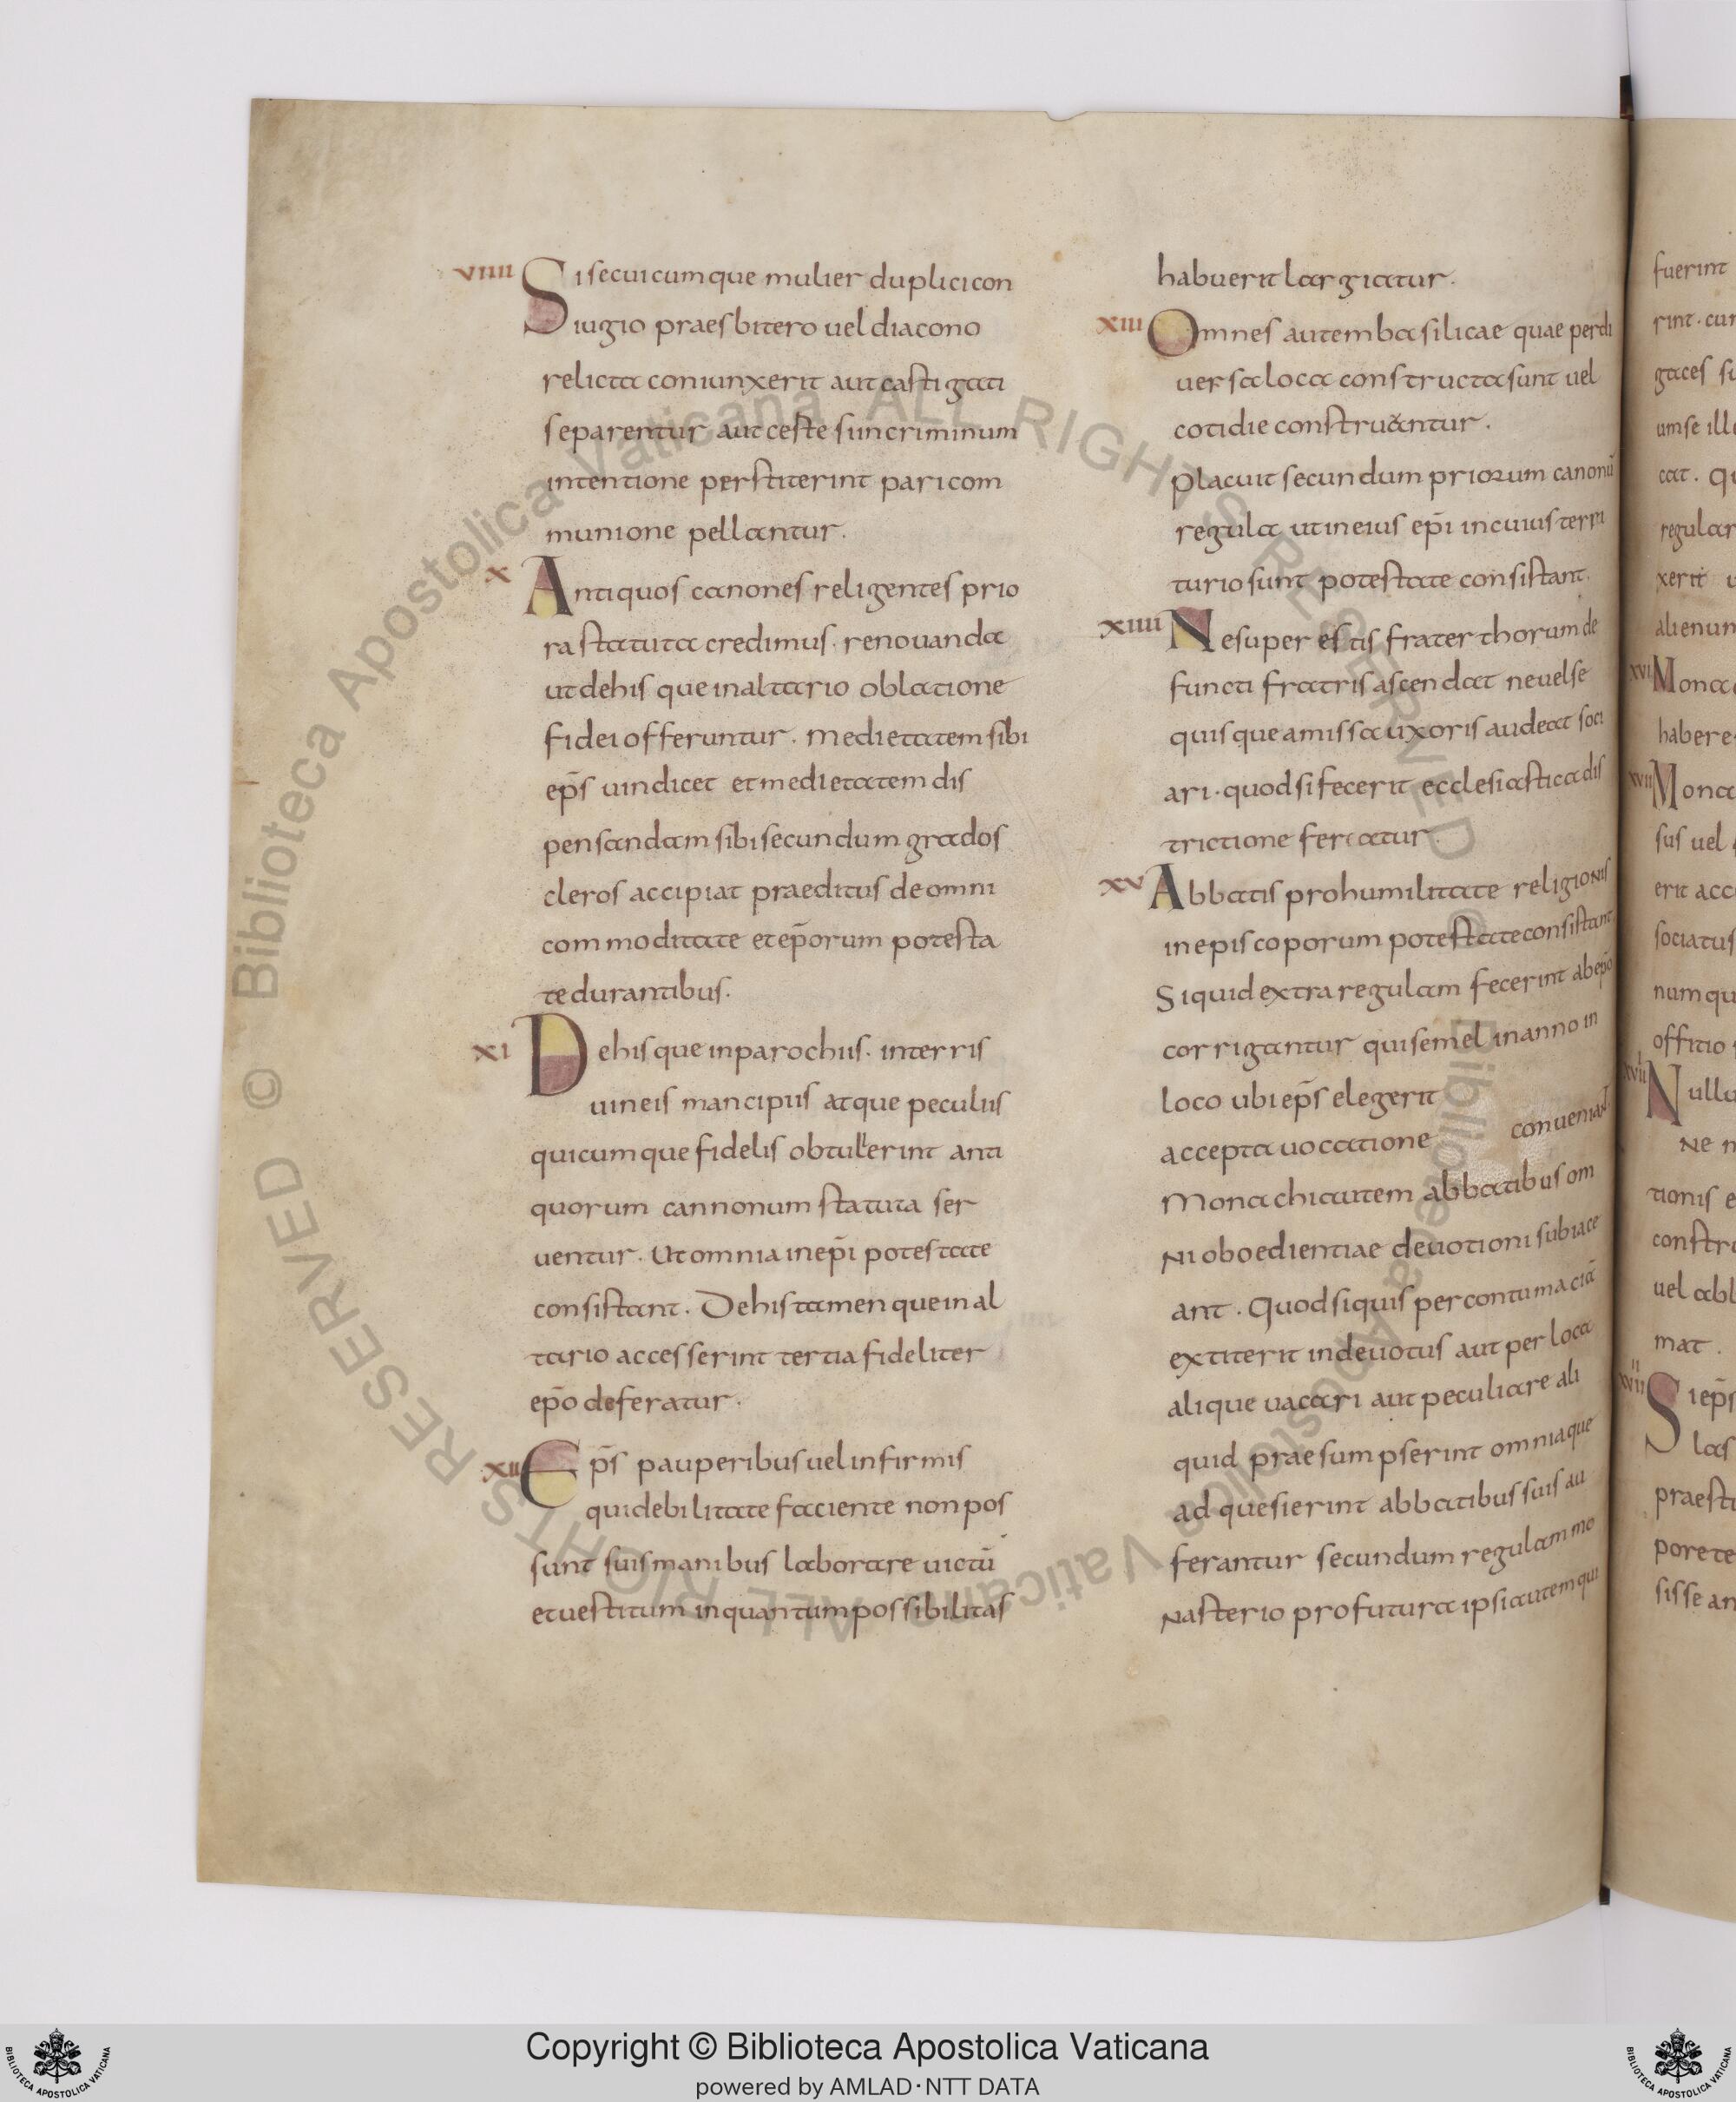 VIIII Si secuicumque mulier duplici con
iugio praesbitero uel diacono
relicta coniunxerit aut castigati
separentur aut ceste sun criminum
intentione perstiterint pari com
munione pellantur.
X Antiquos canones religentes prio
ra statuta credimus. renouanda
ut de his que in altario oblatione
fidei offeruntur. medietatem sibi
ep̄s uindicet et medietatem dis
pensandam sibi secundum grados
cleros accipiat praeditus de omni
commoditate et ep̄orum potesta
te durantibus.
XI De his que in parochiis. in terris
uineis mancipiis atque peculiis
quicumque fidelis obtulerint anti
quorum cannonum statuta ser
uentur. Ut omnia in ep̄i potestate
consistant. De his tamen que in al
tario accesserint tertia fideliter
ep̄o deferatur.
XII Ep̄s pauperibus uel infirmis
qui debilitate faciente non pos
sunt suis manibus laborare uictū
et uestitum in quantum possibilitas
habuerit largiatur.
XIII Omnes autem basilicae quae per di
uersa loca constructa sunt uel
cotidie construantur.
Placuit secundum priorum canonū
regula ut in eius ep̄i in cuius terri
turio sunt potestate consistant.
XIIII Ne superestis frater thorum de
functi fratris ascendat neue se
quisque amissa uxoris audeat soci
ari. quod si fecerit ecclesiastica dis
trictione feriatur.
XV Abbatis pro humilitate religionis
in episcoporum potestate consistant
Si quid extra regulam fecerint ab ep̄o
corrigantur qui semel in anno in
loco ubi ep̄s elegerit
accepta uocatione conueniant
Monachi autem abbatibus om
ni oboedientiae deuotioni subiace
ant. Quod si quis per contumaciā
extiterit indeuotus aut per loca
alique uacari aut peculiare ali
quid praesumpserint omnia que
adquesierint abbatibus suis au
ferantur secundum regulam mo
nasterio profutura ipsi autem qui
fuerint
gaces
regular
xerit
alienum
XVI Mona
habere
XVII Mona
sus uel
erit acc
sociatus
num qu
offitio
Nullu
Ne n
tionis e
constr
mat.
Si ep̄s
praest
sisse an
© Biblioteca Apostolica Vaticana ALL RIGHTS RESERVED © Biblioteca Apostolica Vaticana ALL RIGHTS RESERVED
Copyright © Biblioteca Apostolica Vaticana
powered by AMLAD·NTT DATA
BIBLIOTECA APOSTOLICA VATICANA
BIBLIOTECA APOSTOLICA VATICANA